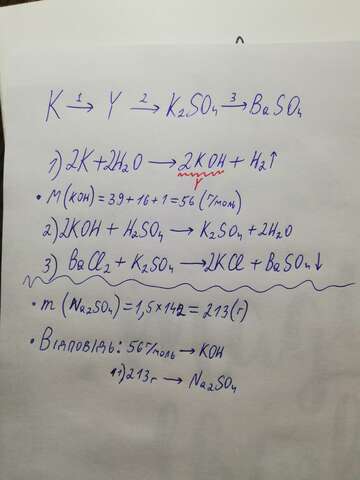 K —1→ Y —2→ K₂SO₄ —3→ BaSO₄
1) 2K + 2H₂O → 2KOH + H₂↑
Y
• M(KOH) = 39 + 16 + 1 = 56 (г/моль)
2) 2KOH + H₂SO₄ → K₂SO₄ + 2H₂O
3) BaCl₂ + K₂SO₄ → 2KCl + BaSO₄↓
• m (Na₂SO₄) = 1,5 × 142 = 213 (г)
• Відповідь: 56 г/моль → KOH
11) 213 г → Na₂SO₄